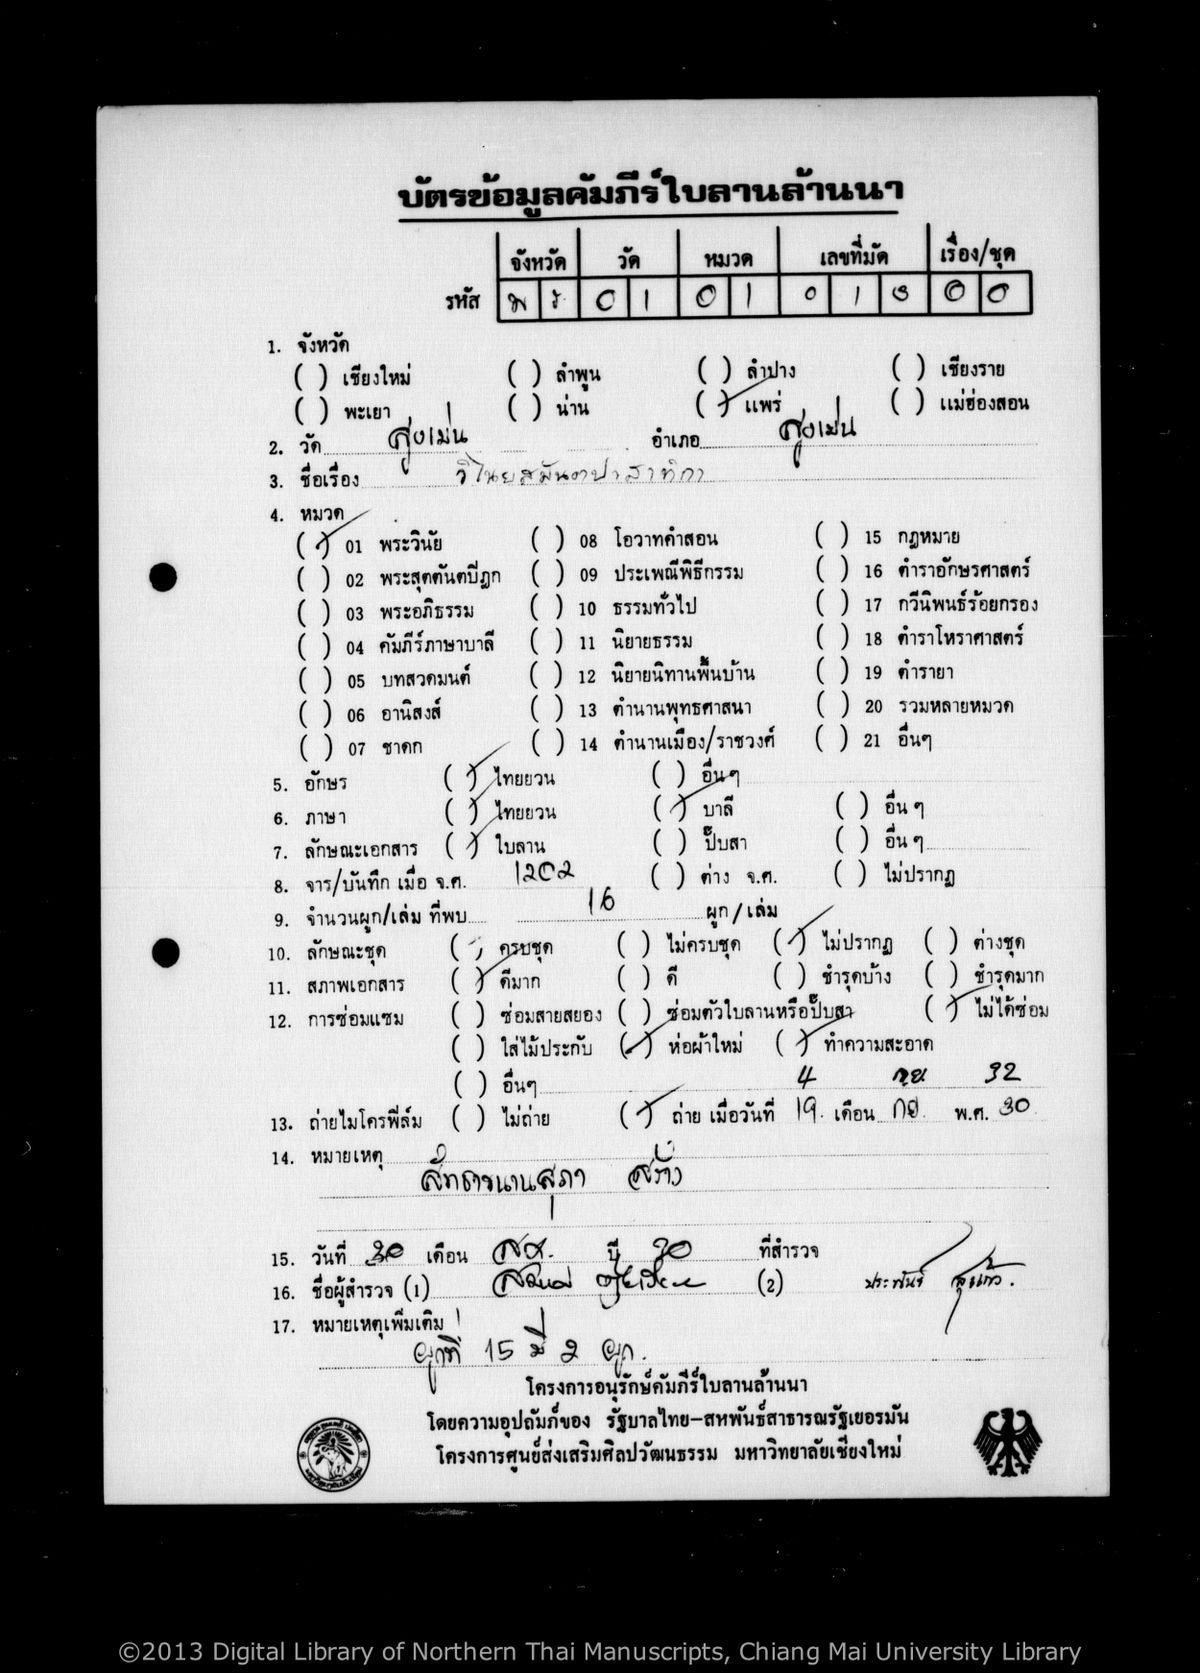 บัตรข้อมูลคัมภีร์ใบลานล้านนา
จังหวัด วัด หมวด เลขที่มัด เรื่อง/ชุด
รหัส พ ร 0 1 0 1 0 1 3 0 0
1. จังหวัด
( ) เชียงใหม่ ( ) ลำพูน ( ) ลำปาง ( ) เชียงราย
( ) พะเยา ( ) น่าน (/) แพร่ ( ) แม่ฮ่องสอน
2. วัด สูงเม่น อำเภอ สูงเม่น
3. ชื่อเรื่อง วิไนยสมันตปาสาทิกา
4. หมวด
(/) 01 พระวินัย ( ) 08 โอวาทคำสอน ( ) 15 กฎหมาย
( ) 02 พระสุตตันตปิฎก ( ) 09 ประเพณีพิธีกรรม ( ) 16 ตำราอักษรศาสตร์
( ) 03 พระอภิธรรม ( ) 10 ธรรมทั่วไป ( ) 17 กวีนิพนธ์ร้อยกรอง
( ) 04 คัมภีร์ภาษาบาลี ( ) 11 นิยายธรรม ( ) 18 ตำราโหราศาสตร์
( ) 05 บทสวดมนต์ ( ) 12 นิยายนิทานพื้นบ้าน ( ) 19 ตำรายา
( ) 06 อานิสงส์ ( ) 13 ตำนานพุทธศาสนา ( ) 20 รวมหลายหมวด
( ) 07 ชาดก ( ) 14 ตำนานเมือง/ราชวงศ์ ( ) 21 อื่นๆ
5. อักษร (/) ไทยยวน ( ) อื่น ๆ
6. ภาษา (/) ไทยยวน (/) บาลี ( ) อื่น ๆ
7. ลักษณะเอกสาร (/) ใบลาน ( ) ปั๊บสา ( ) อื่น ๆ
8. จาร/บันทึก เมื่อ จ.ศ. 1202 ( ) ต่าง จ.ศ. ( ) ไม่ปรากฏ
9. จำนวนผูก/เล่ม ที่พบ 16 ผูก/เล่ม
10. ลักษณะชุด ( ) ครบชุด ( ) ไม่ครบชุด (/) ไม่ปรากฏ ( ) ต่างชุด
11. สภาพเอกสาร (/) ดีมาก ( ) ดี ( ) ชำรุดบ้าง ( ) ชำรุดมาก
12. การซ่อมแซม ( ) ซ่อมสายสยอง ( ) ซ่อมตัวใบลานหรือปั๊บสา (/) ไม่ได้ซ่อม
( ) ใส่ไม้ประกับ (/) ห่อผ้าใหม่ (/) ทำความสะอาด
( ) อื่นๆ 4 กย. 32
13. ถ่ายไมโครฟิล์ม ( ) ไม่ถ่าย (/) ถ่าย เมื่อวันที่ 19. เดือน กย. พ.ศ. 30
14. หมายเหตุ
สร้าง
15. วันที่ 30 เดือน สค. ปี 30 ที่สำรวจ
16. ชื่อผู้สำรวจ (1) (2) ประพันธ์
17. หมายเหตุเพิ่มเติม
ผูกที่ 15 มี 2 ผูก.
โครงการอนุรักษ์คัมภีร์ใบลานล้านนา
โดยความอุปถัมภ์ของ รัฐบาลไทย-สหพันธ์สาธารณรัฐเยอรมัน
โครงการศูนย์ส่งเสริมศิลปวัฒนธรรม มหาวิทยาลัยเชียงใหม่
©2013 Digital Library of Northern Thai Manuscripts, Chiang Mai University Library